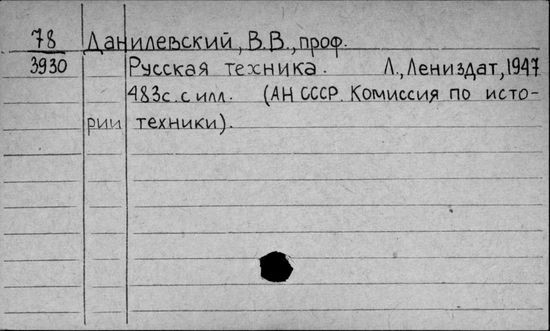 78 Данилевский, В.В., проф.
3930 Русская техника. Л., Лениздат, 1947
483с. с илл. (АН СССР. Комиссия по исто-
рии техники).